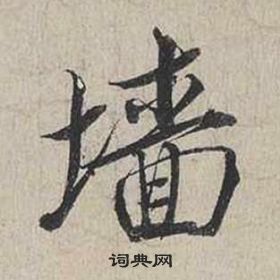 墙
词典网